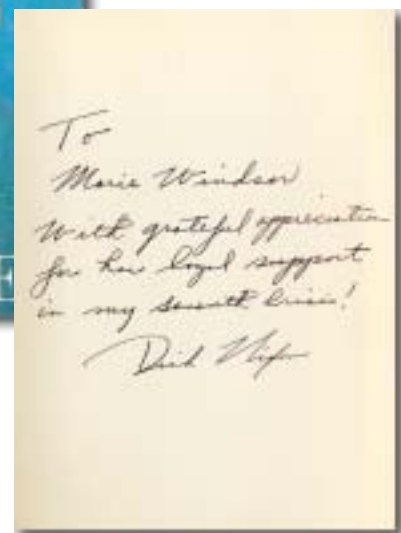 To
Marie Windsor
With grateful appreciation
for her loyal support
in my seventh crisis!
Dick Nixon
E